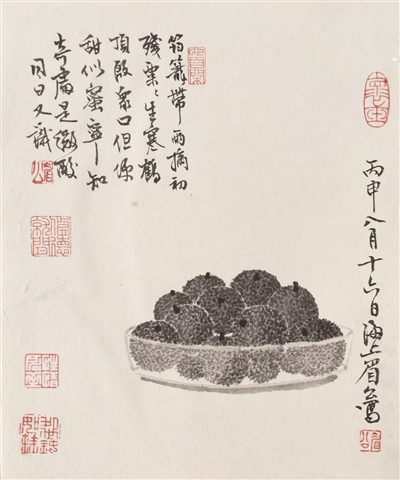 丙申八月十六日海上眉
筠籠帶雨摘初
殘粟〻生寒鶴
頂殷衆口但便
甜似蜜寧知
奇處是微酸
同日又識